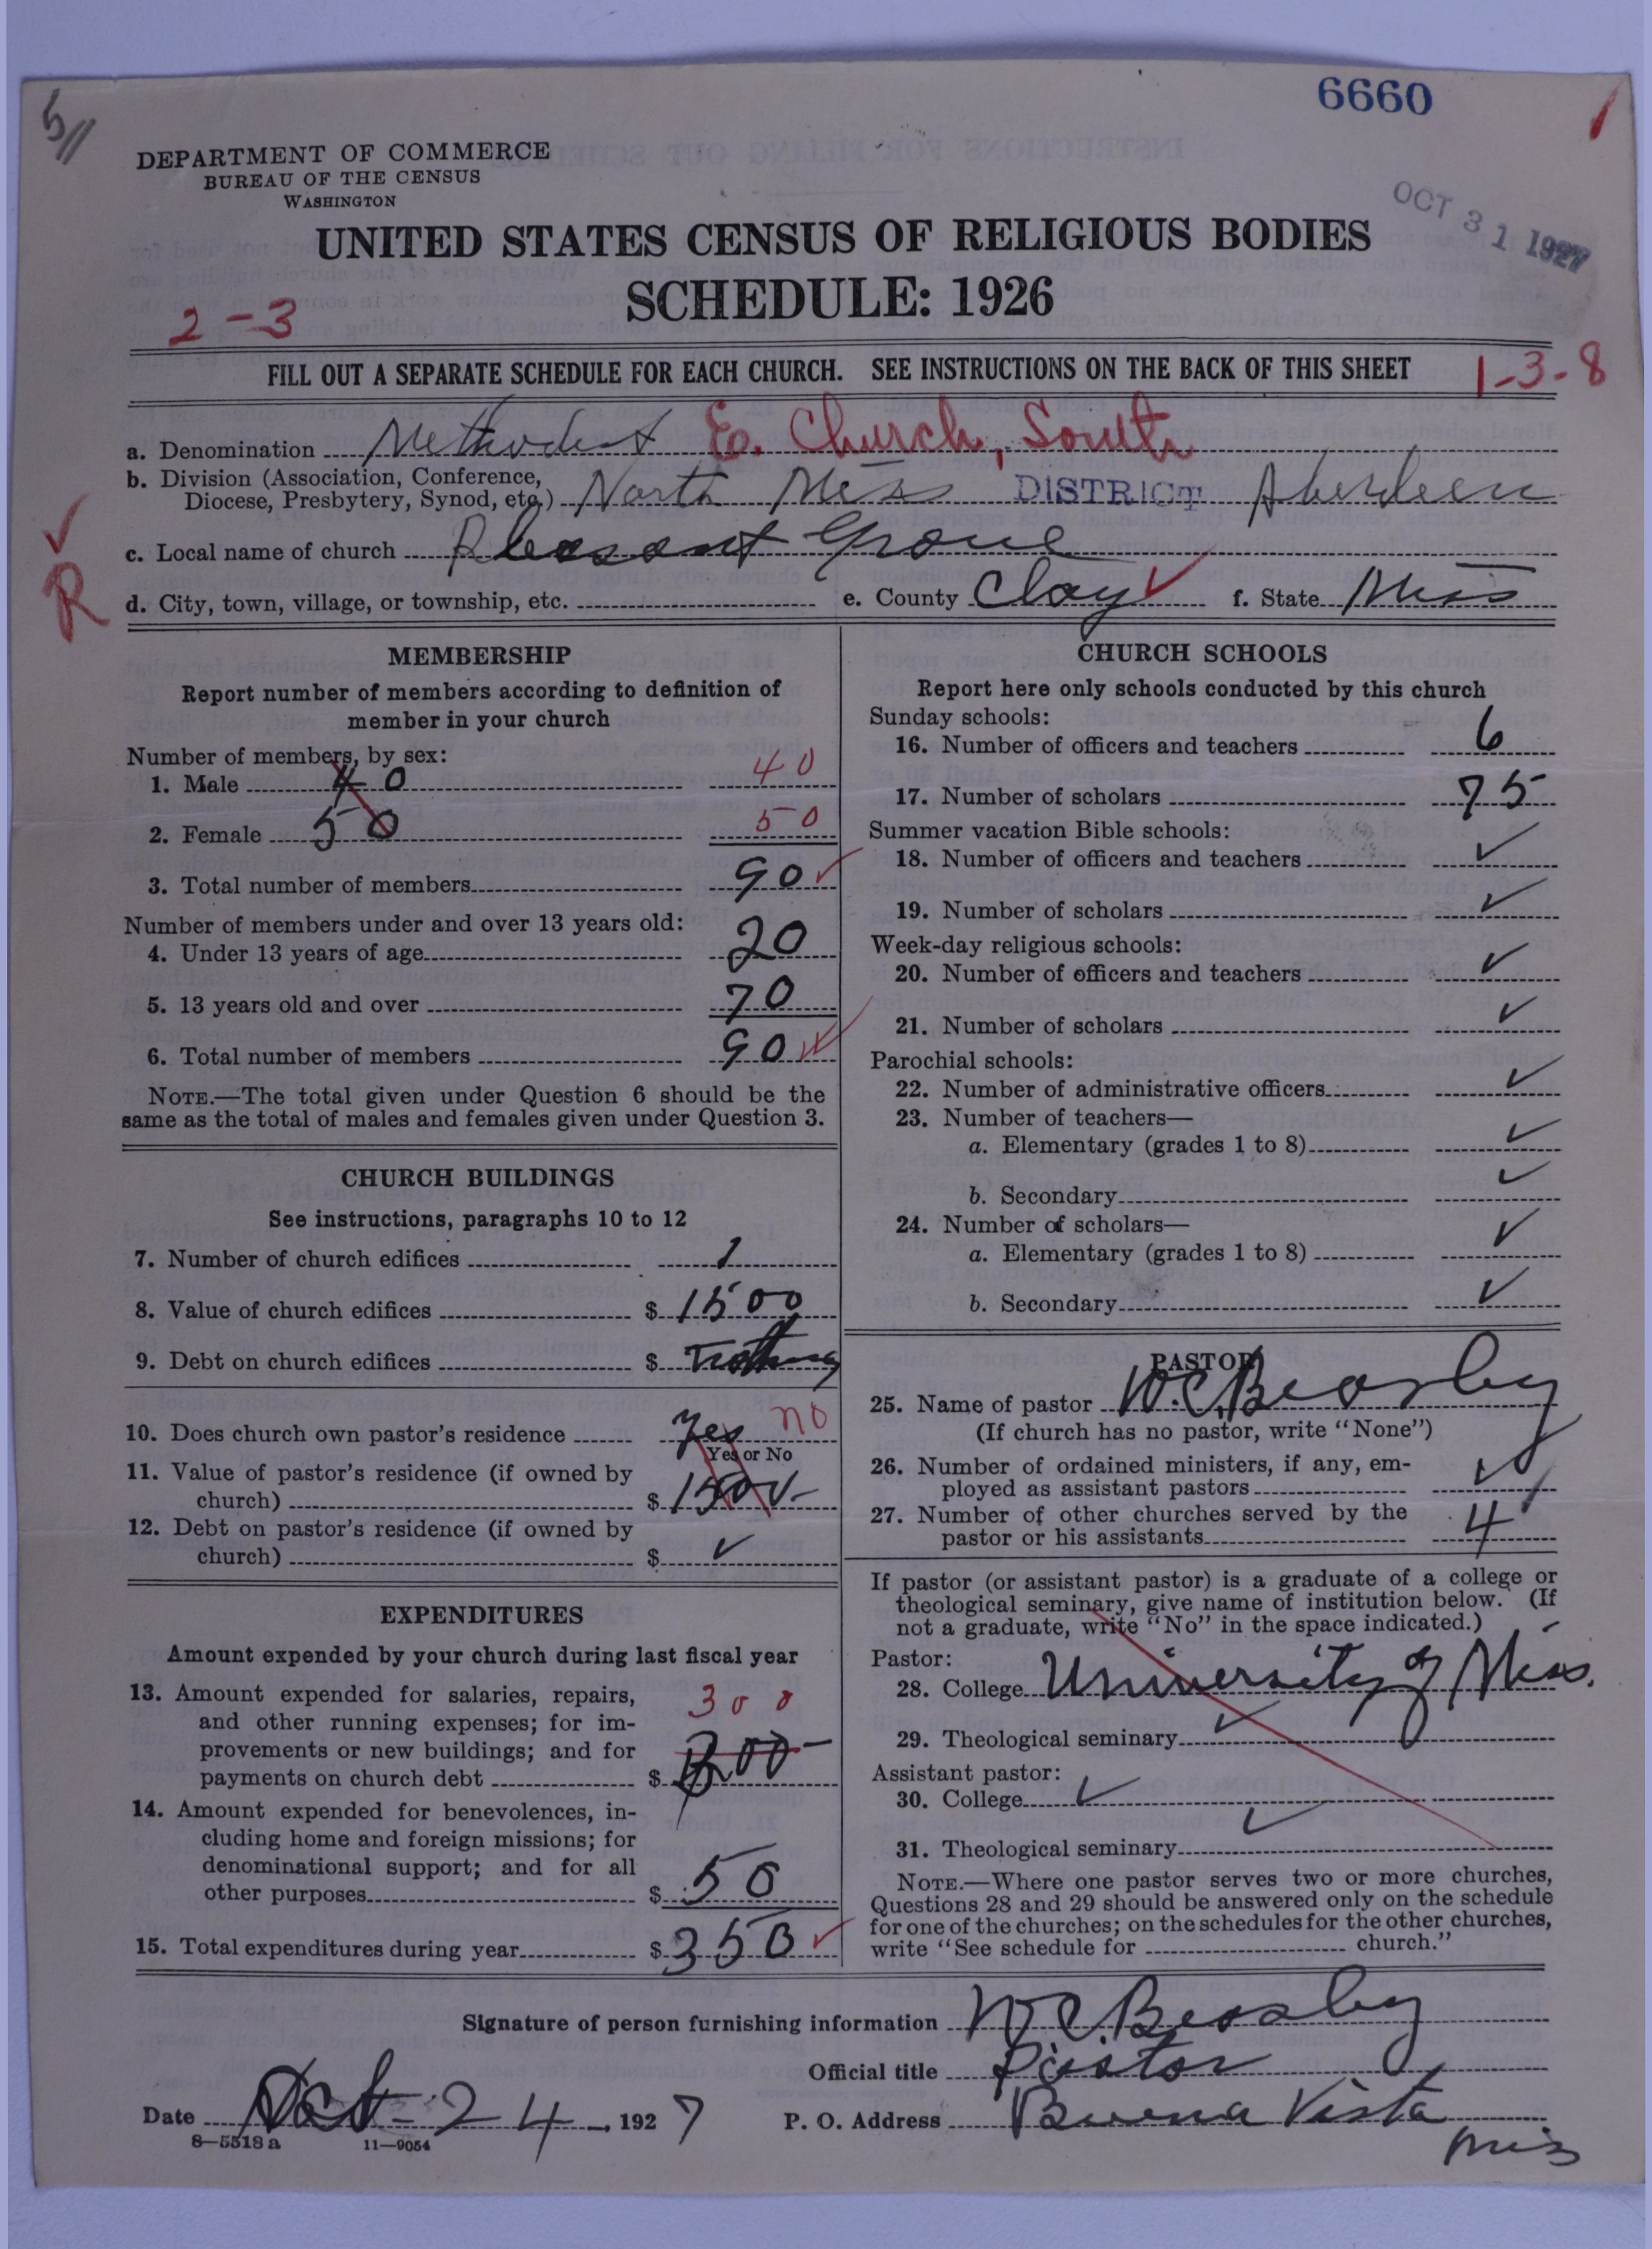 6660
5//
DEPARTMENT OF COMMERCE
BUREAU OF THE CENSUS
WASHINGTON
OCT 31 1927
UNITED STATES CENSUS OF RELIGIOUS BODIES
SCHEDULE: 1926
2-3
FILL OUT A SEPARATE SCHEDULE FOR EACH CHURCH. SEE INSTRUCTIONS ON THE BACK OF THIS SHEET
1-3-8
a. Denomination Methodist E. Church, South
b. Division (Association, Conference,
Diocese, Presbytery, Synod, etc.) North Miss DISTRICT Aberdeen
c. Local name of church Pleasant Grove
R
d. City, town, village, or township, etc. e. County Clay ✓ f. State Miss
MEMBERSHIP
Report number of members according to definition of
member in your church
Number of members, by sex:
1. Male 40 40
2. Female 50 50
3. Total number of members 90 ✓
Number of members under and over 13 years old:
4. Under 13 years of age 20
5. 13 years old and over 70
6. Total number of members 90 ✓
NOTE.—The total given under Question 6 should be the
same as the total of males and females given under Question 3.
CHURCH BUILDINGS
See instructions, paragraphs 10 to 12
7. Number of church edifices 1
8. Value of church edifices $ 1500
9. Debt on church edifices $ Nothing
10. Does church own pastor's residence Yes no
Yes or No
11. Value of pastor's residence (if owned by
church) $ 1500-
12. Debt on pastor's residence (if owned by
church) $ ✓
EXPENDITURES
Amount expended by your church during last fiscal year
13. Amount expended for salaries, repairs, 300
and other running expenses; for im-
provements or new buildings; and for
payments on church debt $ 300-
14. Amount expended for benevolences, in-
cluding home and foreign missions; for
denominational support; and for all
other purposes $ 50
15. Total expenditures during year $ 350 ✓
CHURCH SCHOOLS
Report here only schools conducted by this church
Sunday schools:
16. Number of officers and teachers 6
17. Number of scholars 75
Summer vacation Bible schools:
18. Number of officers and teachers ✓
19. Number of scholars ✓
Week-day religious schools:
20. Number of officers and teachers ✓
21. Number of scholars ✓
Parochial schools:
22. Number of administrative officers ✓
23. Number of teachers—
a. Elementary (grades 1 to 8) ✓
b. Secondary ✓
24. Number of scholars—
a. Elementary (grades 1 to 8) ✓
b. Secondary ✓
PASTOR
25. Name of pastor W.C. Beasley
(If church has no pastor, write "None")
26. Number of ordained ministers, if any, em-
ployed as assistant pastors ✓
27. Number of other churches served by the
pastor or his assistants 4
If pastor (or assistant pastor) is a graduate of a college or
theological seminary, give name of institution below. (If
not a graduate, write "No" in the space indicated.)
Pastor:
28. College University of Miss.
29. Theological seminary ✓
Assistant pastor:
30. College ✓
31. Theological seminary ✓
NOTE.—Where one pastor serves two or more churches,
Questions 28 and 29 should be answered only on the schedule
for one of the churches; on the schedules for the other churches,
write "See schedule for church."
Signature of person furnishing information W C Beasley
Official title Pastor
Date Oct-24, 1927 P. O. Address Buena Vista
Miss
8—5518a 11—9054